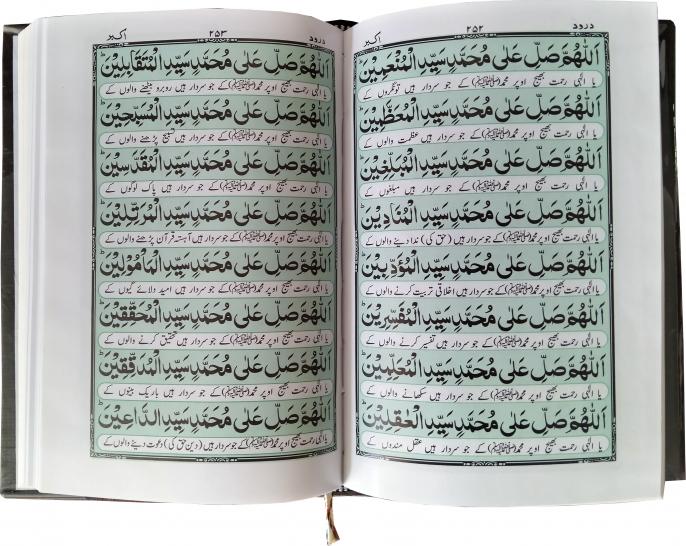 درود
۲۵۲
اکبر
اَللّٰهُمَّ صَلِّ عَلٰى مُحَمَّدٍ سَيِّدِ الْمُنْعَمِيْنَ ؕ
یا الٰہی رحمت بھیج اوپر محمد(ﷺ)کے جو سردار ہیں تونگروں کے
اَللّٰهُمَّ صَلِّ عَلٰى مُحَمَّدٍ سَيِّدِ الْمُعَظَّمِيْنَ ؕ
یا الٰہی رحمت بھیج اوپر محمد(ﷺ)کے جو سردار ہیں عظمت والوں کے
اَللّٰهُمَّ صَلِّ عَلٰى مُحَمَّدٍ سَيِّدِ الْمُبَلِّغِيْنَ ؕ
یا الٰہی رحمت بھیج اوپر محمد(ﷺ)کے جو سردار ہیں مبلغوں کے
اَللّٰهُمَّ صَلِّ عَلٰى مُحَمَّدٍ سَيِّدِ الْمُنَادِيْنَ ؕ
یا الٰہی رحمت بھیج اوپر محمد(ﷺ)کے جو سردار ہیں (حق کی) ندا دینے والوں کے
اَللّٰهُمَّ صَلِّ عَلٰى مُحَمَّدٍ سَيِّدِ الْمُؤَدِّبِيْنَ ؕ
یا الٰہی رحمت بھیج اوپر محمد(ﷺ)کے جو سردار ہیں اخلاقی تربیت کرنے والوں کے
اَللّٰهُمَّ صَلِّ عَلٰى مُحَمَّدٍ سَيِّدِ الْمُفَسِّرِيْنَ ؕ
یا الٰہی رحمت بھیج اوپر محمد(ﷺ)کے جو سردار ہیں تفسیر کرنے والوں کے
اَللّٰهُمَّ صَلِّ عَلٰى مُحَمَّدٍ سَيِّدِ الْمُعَلِّمِيْنَ ؕ
یا الٰہی رحمت بھیج اوپر محمد(ﷺ)کے جو سردار ہیں سکھانے والوں کے
اَللّٰهُمَّ صَلِّ عَلٰى مُحَمَّدٍ سَيِّدِ الْعٰقِلِيْنَ ؕ
یا الٰہی رحمت بھیج اوپر محمد(ﷺ)کے جو سردار ہیں عقل مندوں کے
درود
۲۵۳
اکبر
اَللّٰهُمَّ صَلِّ عَلٰى مُحَمَّدٍ سَيِّدِ الْمُتَقَابِلِيْنَ ؕ
یا الٰہی رحمت بھیج اوپر محمد(ﷺ)کے جو سردار ہیں روبرو بیٹھنے والوں کے
اَللّٰهُمَّ صَلِّ عَلٰى مُحَمَّدٍ سَيِّدِ الْمُسَبِّحِيْنَ ؕ
یا الٰہی رحمت بھیج اوپر محمد(ﷺ)کے جو سردار ہیں تسبیح پڑھنے والوں کے
اَللّٰهُمَّ صَلِّ عَلٰى مُحَمَّدٍ سَيِّدِ الْمُقَدَّسِيْنَ ؕ
یا الٰہی رحمت بھیج اوپر محمد(ﷺ)کے جو سردار ہیں پاک لوگوں کے
اَللّٰهُمَّ صَلِّ عَلٰى مُحَمَّدٍ سَيِّدِ الْمُرَتِّلِيْنَ ؕ
یا الٰہی رحمت بھیج اوپر محمد(ﷺ)کے جو سردار ہیں آہستہ قرآن پڑھنے والوں کے
اَللّٰهُمَّ صَلِّ عَلٰى مُحَمَّدٍ سَيِّدِ الْمَاْمُوْلِيْنَ ؕ
یا الٰہی رحمت بھیج اوپر محمد(ﷺ)کے جو سردار ہیں امید دلائے گیوں کے
اَللّٰهُمَّ صَلِّ عَلٰى مُحَمَّدٍ سَيِّدِ الْمُحَقِّقِيْنَ ؕ
یا الٰہی رحمت بھیج اوپر محمد(ﷺ)کے جو سردار ہیں تحقیق کرنے والوں کے
اَللّٰهُمَّ صَلِّ عَلٰى مُحَمَّدٍ سَيِّدِ الْمُدَقِّقِيْنَ ؕ
یا الٰہی رحمت بھیج اوپر محمد(ﷺ)کے جو سردار ہیں باریک بینوں کے
اَللّٰهُمَّ صَلِّ عَلٰى مُحَمَّدٍ سَيِّدِ الدَّاعِيْنَ ؕ
یا الٰہی رحمت بھیج اوپر محمد(ﷺ)کے جو سردار ہیں (دین حق کی) دعوت دینے والوں کے